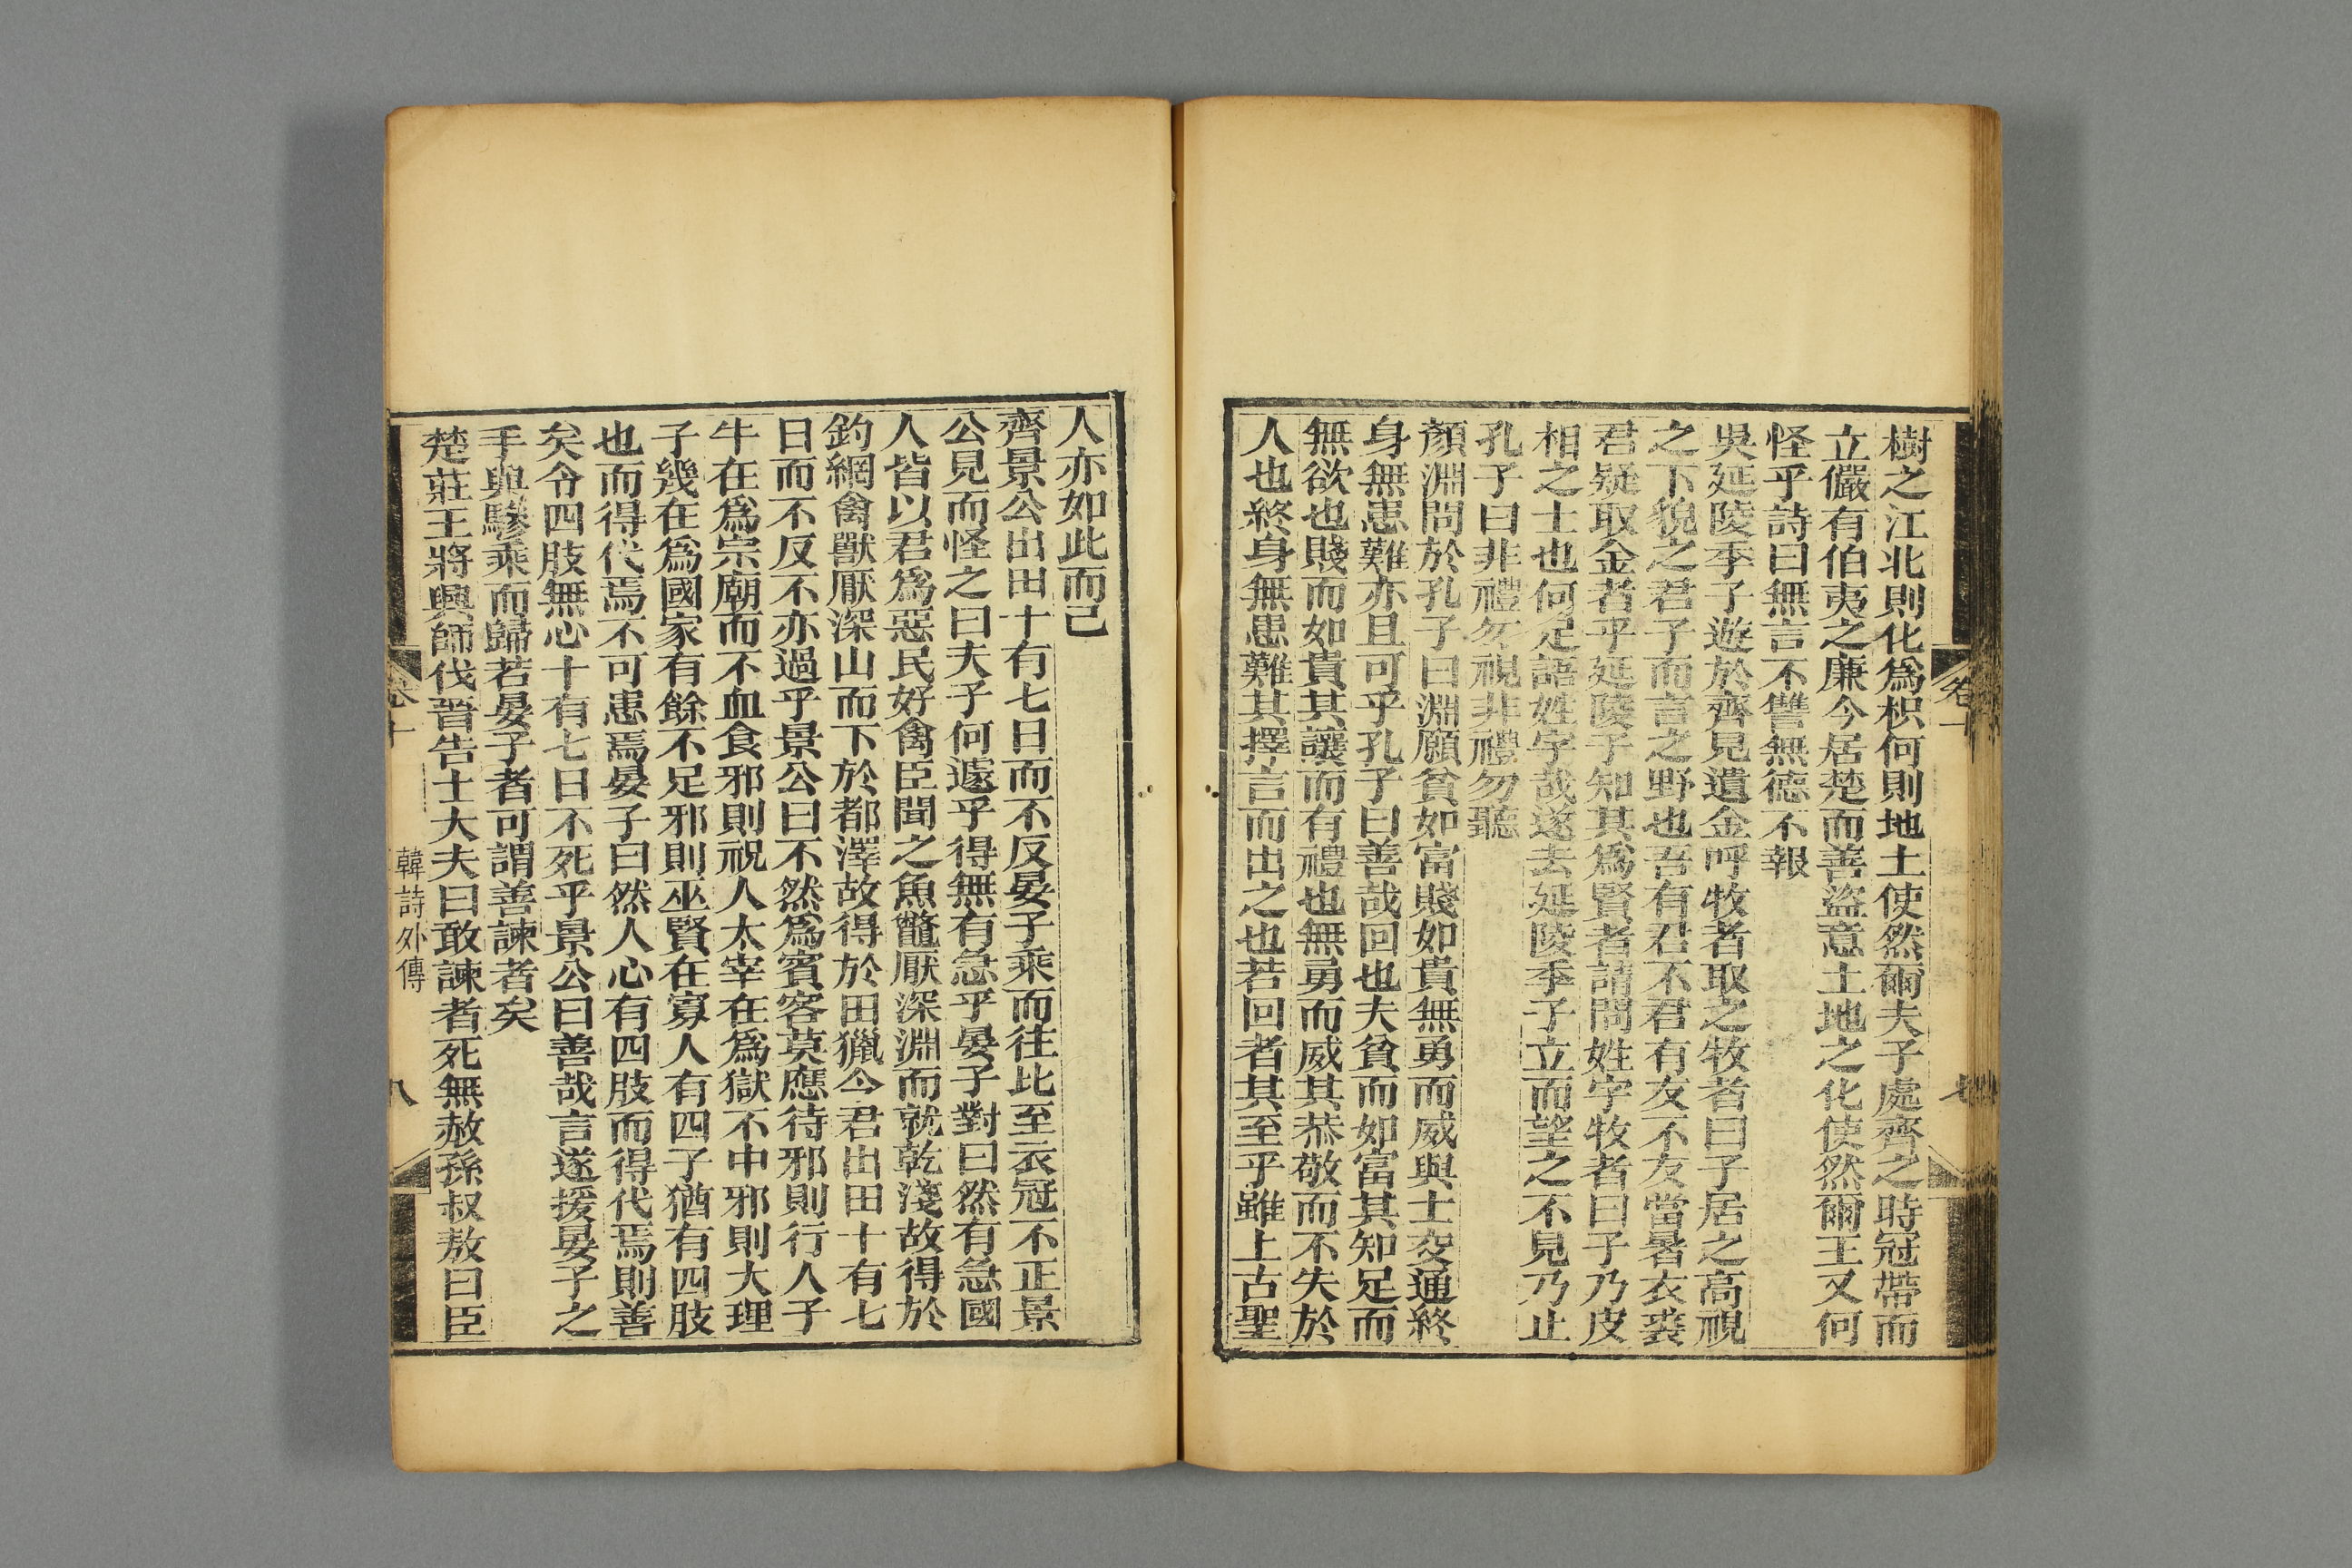 樹之江北則化爲枳何則地土使然爾夫子處齊之時冠帶而
立儼有伯夷之廉今居楚而善盜意土地之化使然爾王又何
怪乎詩曰無言不讐無德不報
吳延陵季子遊於齊見遺金呼牧者取之牧者曰子居之高視
之下貌之君子而言之野也吾有君不君有友不友當暑衣裘
君疑取金者乎延陵子知其爲賢者請問姓字牧者曰子乃皮
相之士也何足語姓字哉遂去延陵季子立而望之不見乃止
孔子曰非禮勿視非禮勿聽
顏淵問於孔子曰淵願貧如富賤如貴無勇而威與士交通終
身無患難亦且可乎孔子曰善哉回也夫貧而如富其知足而
無欲也賤而如貴其讓而有禮也無勇而威其恭敬而不失於
人也終身無患難其擇言而出之也若回者其至乎雖上古聖
卷十
七
人亦如此而已
齊景公出田十有七日而不反晏子乘而往比至衣冠不正景
公見而怪之曰夫子何遽乎得無有急乎晏子對曰然有急國
人皆以君爲惡民好禽臣聞之魚鼈厭深淵而就乾淺故得於
釣網禽獸厭深山而下於都澤故得於田獵今君出田十有七
日而不反不亦過乎景公曰不然爲賓客莫應待邪則行人子
牛在爲宗廟而不血食邪則祝人太宰在爲獄不中邪則大理
子幾在爲國家有餘不足邪則巫賢在寡人有四子猶有四肢
也而得代焉不可患焉晏子曰然人心有四肢而得代焉則善
矣令四肢無心十有七日不死乎景公曰善哉言遂援晏子之
手與驂乘而歸若晏子者可謂善諫者矣
楚莊王將興師伐晉告士大夫曰敢諫者死無赦孫叔敖曰臣
卷十
韓詩外傳
八